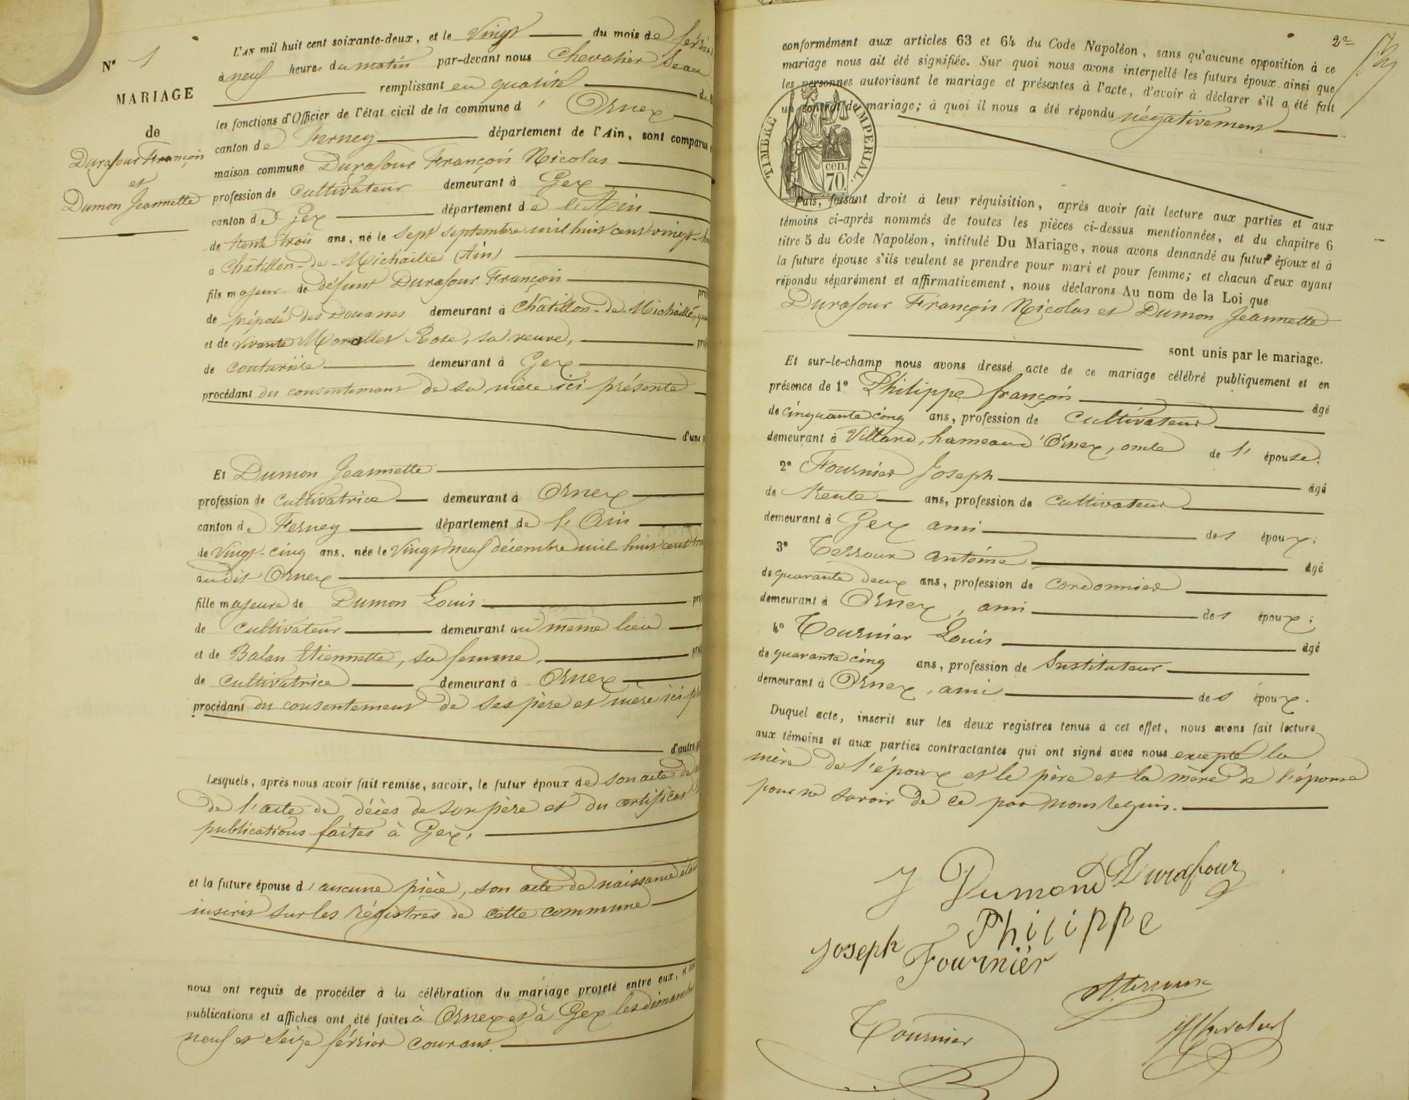 N° 1
MARIAGE
de
Durafour François
et
Dumon Jeannette
L'AN mil huit cent soixante-deux, et le Vingt du mois de
à neuf heures du matin par-devant nous Chevalier Jean
remplissant en qualité
les fonctions d'Officier de l'état civil de la commune d' Ornex
canton de Ferney département de l'Ain, sont comparus
maison commune Durafour François Nicolas
profession de cultivateur demeurant à Gex
canton de Gex département de l'Ain
de trente trois ans, né le sept septembre mil huit cent vingt-
à Châtillon-de-Michaille (Ain)
fils majeur de défunt Durafour François
de préposé des Douanes demeurant à Châtillon-de-Michaille
et de vivante Rose, sa veuve,
de couturière demeurant à Gex
procédant du consentement de sa mère ici présente
d'une
Et Dumon Jeannette
profession de cultivatrice demeurant à Ornex
canton de Ferney département de l'Ain
de Vingt-cinq ans, née le Vingt neuf décembre mil huit cent
au dit Ornex
fille majeure de Dumon Louis
de cultivateur demeurant au même lieu
et de Balan Etiennette, sa femme,
de cultivatrice demeurant à Ornex
procédant du consentement de ses père et mère ici
d'autre
Lesquels, après nous avoir fait remise, savoir, le futur époux de son acte de
de l'acte de décès de son père et du certificat
publications faites à Gex,
et la future épouse d'aucune pièce, son acte de naissance étant
inscrit sur les régistres de cette commune
nous ont requis de procéder à la célébration du mariage projeté entre eux,
publications et affiches ont été faites à Ornex et à Gex les dimanches
neuf et seize février courant.
2e
conformément aux articles 63 et 64 du Code Napoléon, sans qu'aucune opposition à ce
mariage nous ait été signifiée. Sur quoi nous avons interpellé les futurs époux ainsi que
les personnes autorisant le mariage et présentes à l'acte, d'avoir à déclarer s'il a été fait
un contrat de mariage; à quoi il nous a été répondu négativement
TIMBRE IMPÉRIAL
cen.
70.
Puis, faisant droit à leur réquisition, après avoir fait lecture aux parties et aux
témoins ci-après nommés de toutes les pièces ci-dessus mentionnées, et du chapitre 6
titre 5 du Code Napoléon, intitulé Du Mariage, nous avons demandé au futur époux et à
la future épouse s'ils veulent se prendre pour mari et pour femme; et chacun d'eux ayant
répondu séparément et affirmativement, nous déclarons Au nom de la Loi que
Durafour François Nicolas et Dumon Jeannette
sont unis par le mariage.
Et sur-le-champ nous avons dressé acte de ce mariage célébré publiquement et en
présence de 1° Philippe françois âgé
de cinquante cinq ans, profession de cultivateur
demeurant à Villard, hameau d'Ornex, oncle de l'épouse.
2° Fournier Joseph âgé
de trente ans, profession de cultivateur
demeurant à Gex ami des époux.
3° Terroux antoine âgé
de quarante deux ans, profession de cordonnier
demeurant à Ornex, ami des époux;
4° Tournier Louis âgé
de quarante cinq ans, profession de Instituteur
demeurant à Ornex, ami des époux.
Duquel acte, inscrit sur les deux registres tenus à cet effet, nous avons fait lecture
aux témoins et aux parties contractantes qui ont signé avec nous excepté la
mère de l'époux et le père et la mère de l'épouse
pour ne savoir de ce par nous requis.
J Dumond Durafour
Philippe
Joseph Fournier
A. Terroux
Tournier
Chevalier